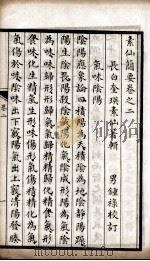 素仙簡要卷之二
長白奎瑛素仙著輯 男鍾祿校訂
氣味陰陽
陰陽應象論曰積陽為天積陰為地陰靜陽躁
陽生陰長陽殺陰藏陽化氣陰成形陽為氣陰
為味味歸形形歸氣氣歸精精歸化精食氣形
食味化生精氣生形味傷形氣傷精精化為氣
氣傷於味陰味出下竅陽氣出上竅清陽發腠